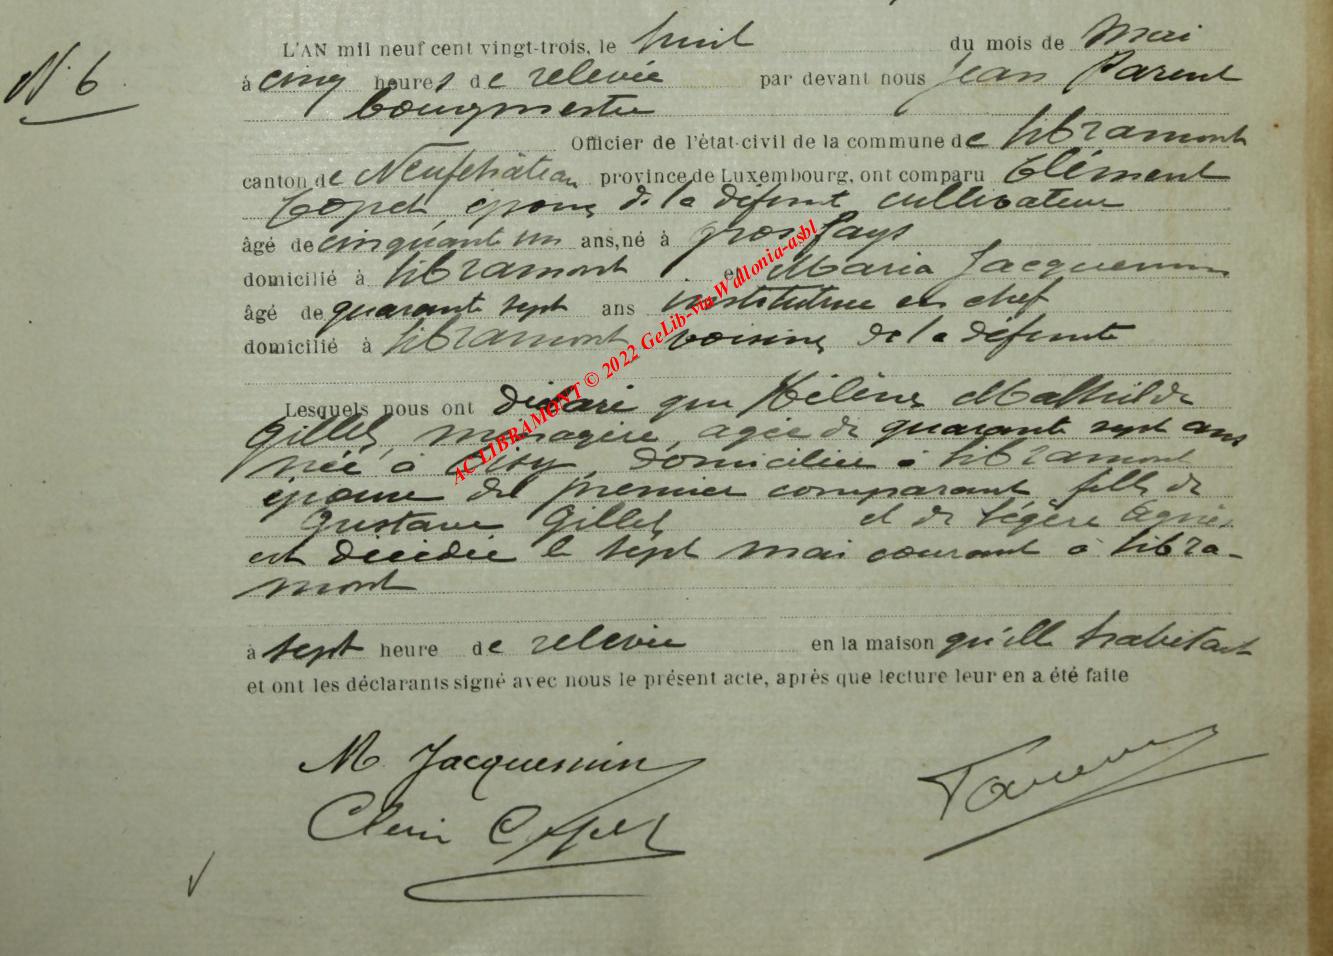 N° 6
L'AN mil neuf cent vingt-trois, le huit du mois de Mai
à cinq heures de relevée par devant nous Jean Parent
bourgmestre
Officier de l'état-civil de la commune de Libramont
canton de Neufchâteau province de Luxembourg, ont comparu Clément
Copet, époux de la défunte cultivateur
âgé de cinquante un ans, né à grosfays
domicilié à Libramont et Maria Jacquemin
âgé de quarante sept ans institutrice en chef
domicilié à Libramont voisine de la défunte
Lesquels nous ont déclaré que Hélène Mathilde
Gillet, ménagère, agée de quarante sept ans
née à domiciliée à Libramont
épouse del premier comparant, fille de
Gustave Gillet et de Légère Agnès
est décédée le sept mai courant à Libra-
mont
à sept heure de relevée en la maison qu'elle habitait
et ont les déclarants signé avec nous le présent acte, après que lecture leur en a été faite
M. Jacquemin
Parent
Clém Copet
AC LIBRAMONT © 2022 GeLib-via Wallonia-asbl